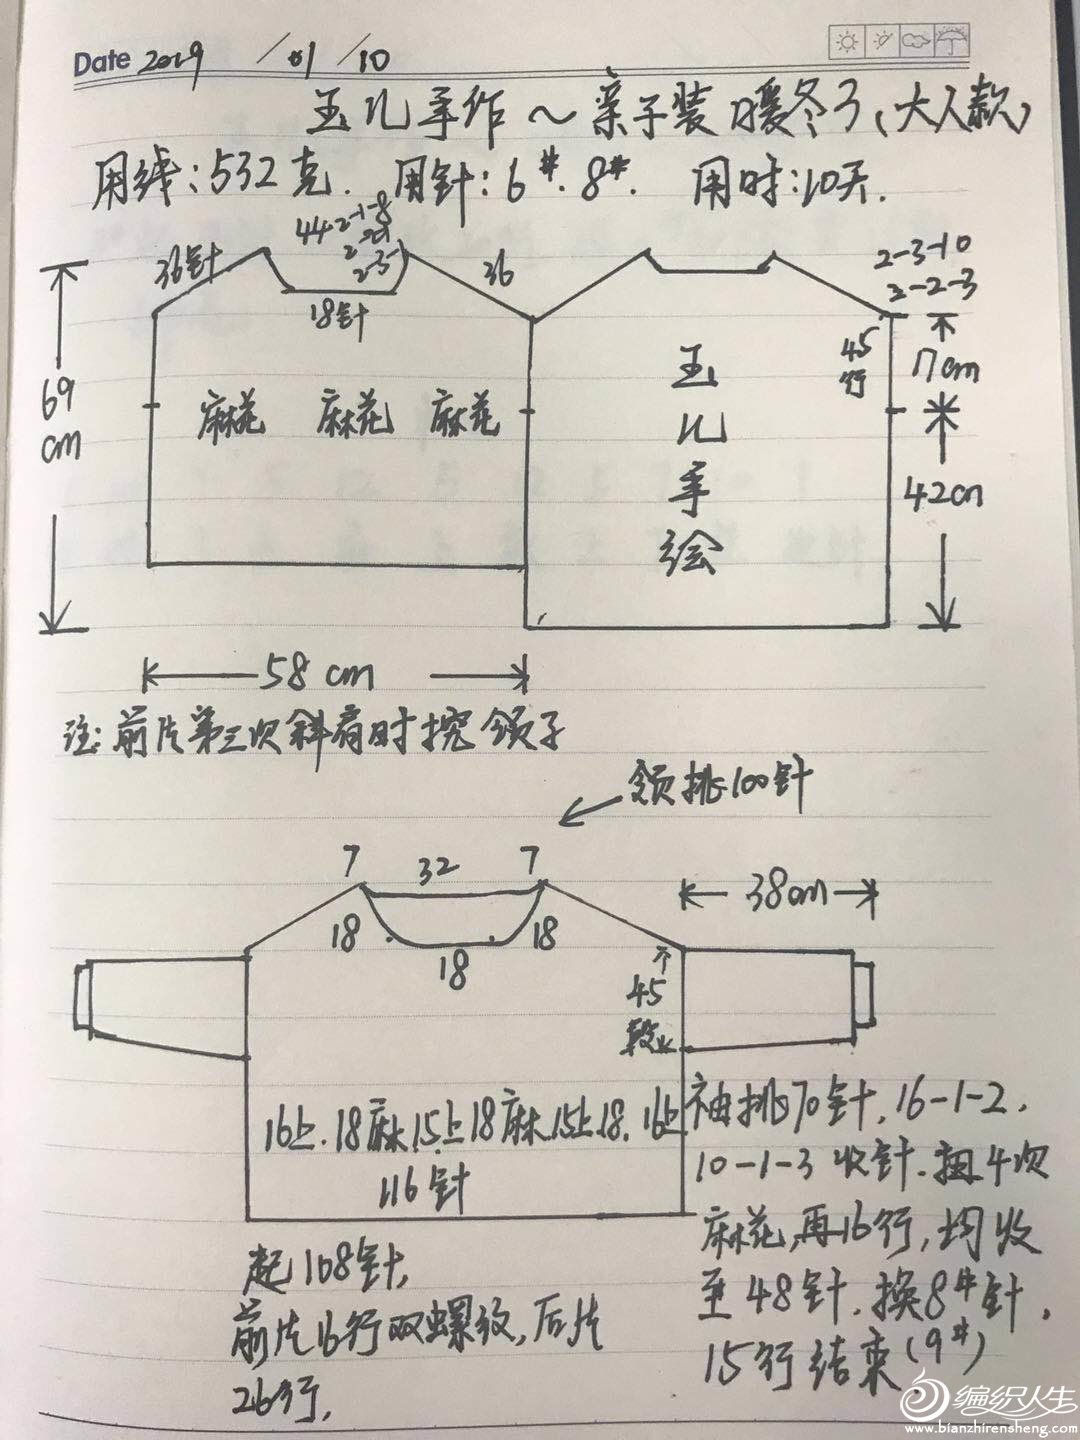 Date 2019 /01/10
玉儿手作～亲子装暖冬了(大人款)
用线:532克. 用针:6#.8#. 用时:10天.
36针
44
2-1-8
2-3-1
18针
36
2-3-10
2-2-3
69cm
麻花 麻花 麻花
玉儿手绘
45行
17cm
42cm
58cm
注:前片第三次斜肩时挖领子
领挑100针
7 32 7
38cm
18 18 18
45
16上.18麻.15上18麻.15上.18.16上
116针
袖挑70针,16-1-2,
10-1-3收针.扭4次
麻花,再16行,均收
至48针.换8#针,
15行结束(9#)
起108针,
前片16行双螺纹,后片
26行.
编织人生
www.bianzhirensheng.com